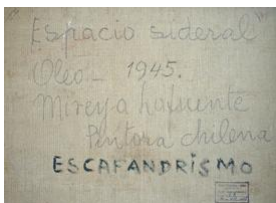 Espacio sideral"
Oleo - 1945.
Mireya Lafuente
Pintora chilena
ESCAFANDRISMO